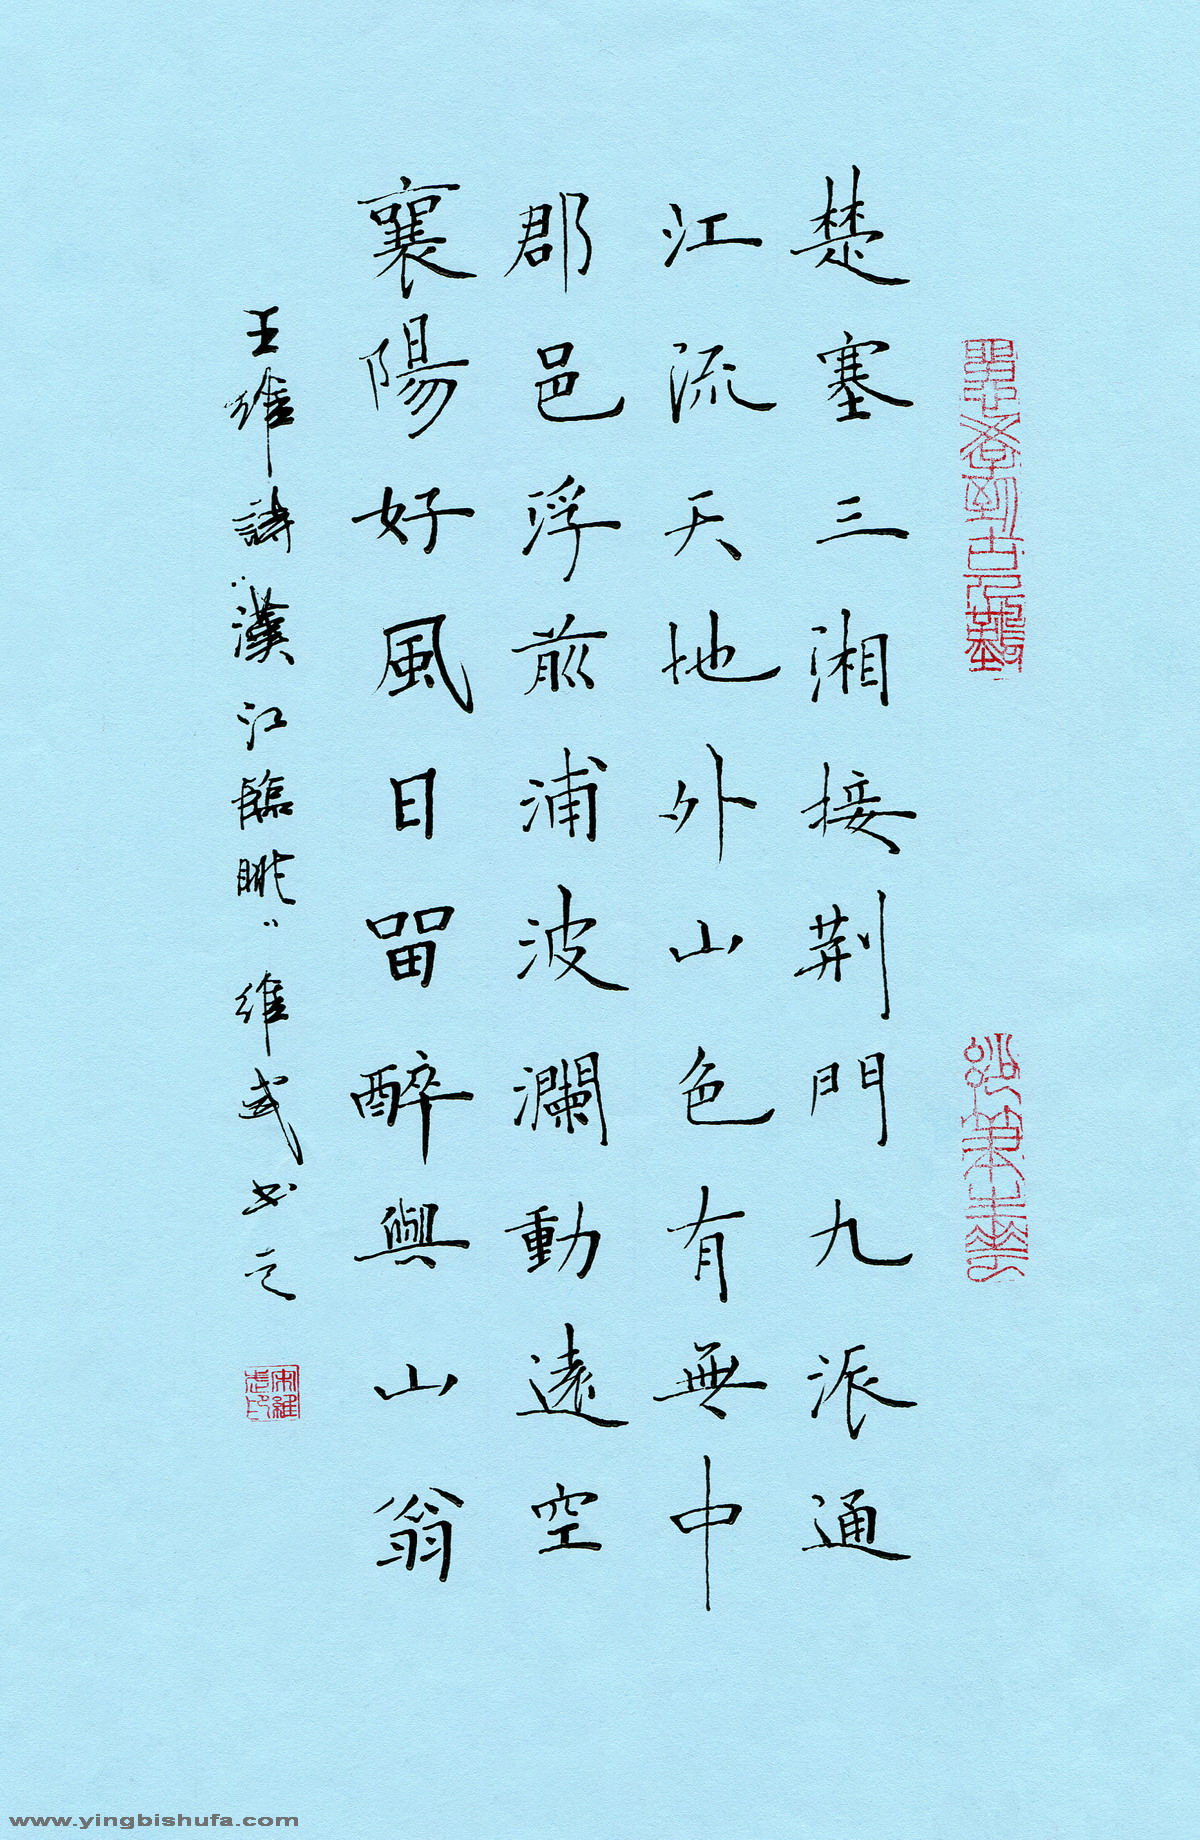 楚塞三湘接荆門九派通
江流天地外山色有無中
郡邑浮前浦波瀾動遠空
襄陽好風日留醉與山翁
王維詩“漢江臨眺”維武书之
www.yingbishufa.com